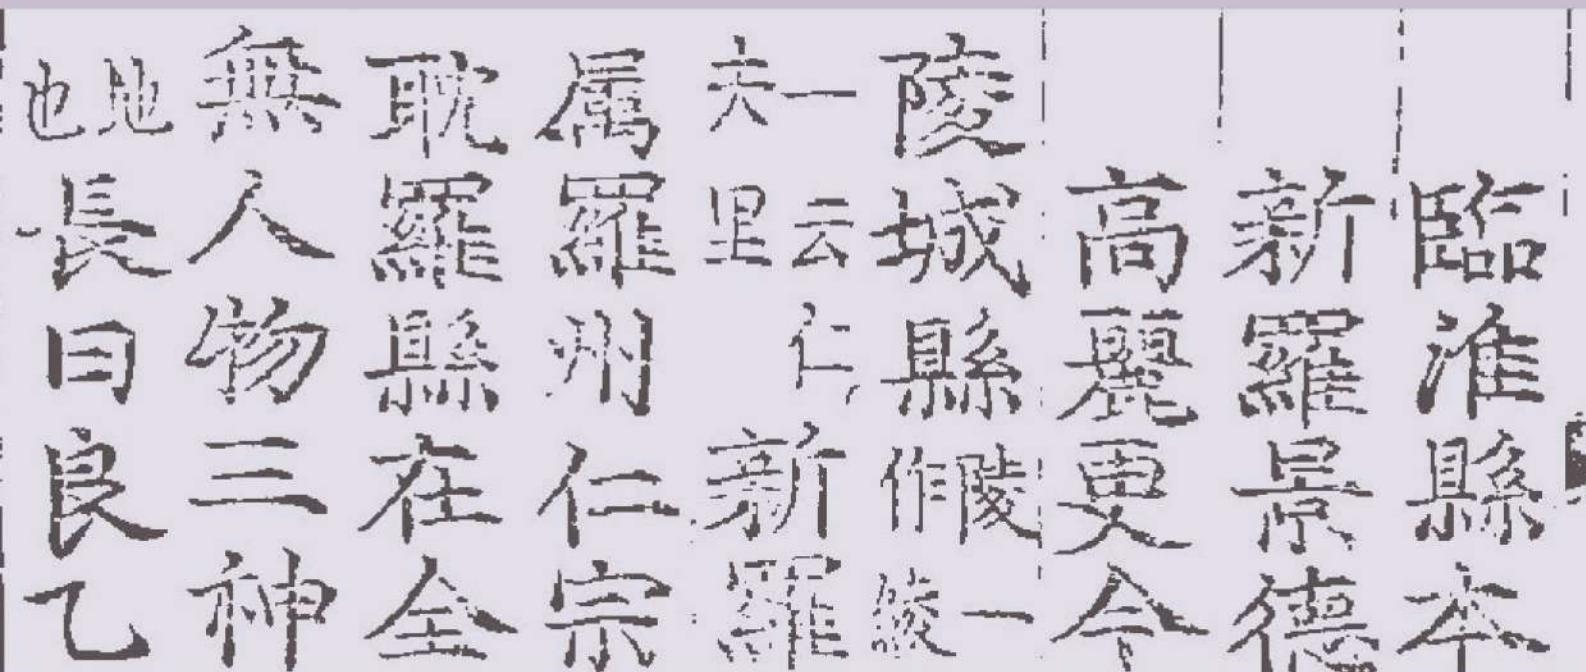 臨淮縣本
新羅景德
高麗更今
陵城縣陵一作綾
一云仁夫里新羅
属羅州仁宗
耽羅縣在全
無人物三神
地也長曰良乙